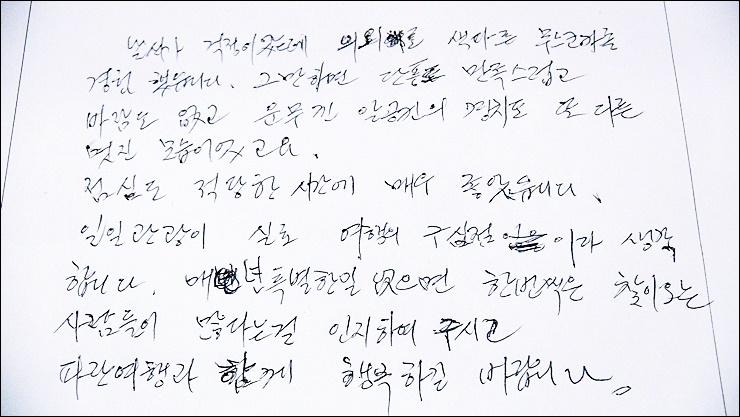 날씨가 걱정이었는데 의외로 색다른
경험 했습니다. 그만하면 단풍도 만족스럽고
바람도 없고 운무낀 일곱건의 경치도 또 다른
멋진 모습이었고요.
점심도 적당한 시간에 매우 좋았습니다.
일일관광이 실로 여행의 구심점이라 생각
합니다. 매년 특별한일 없으면 한번찍은 찾아오는
사람들이 많다는걸 인지하여 주시고
파란여행과 함께 행복하길 바랍니다.